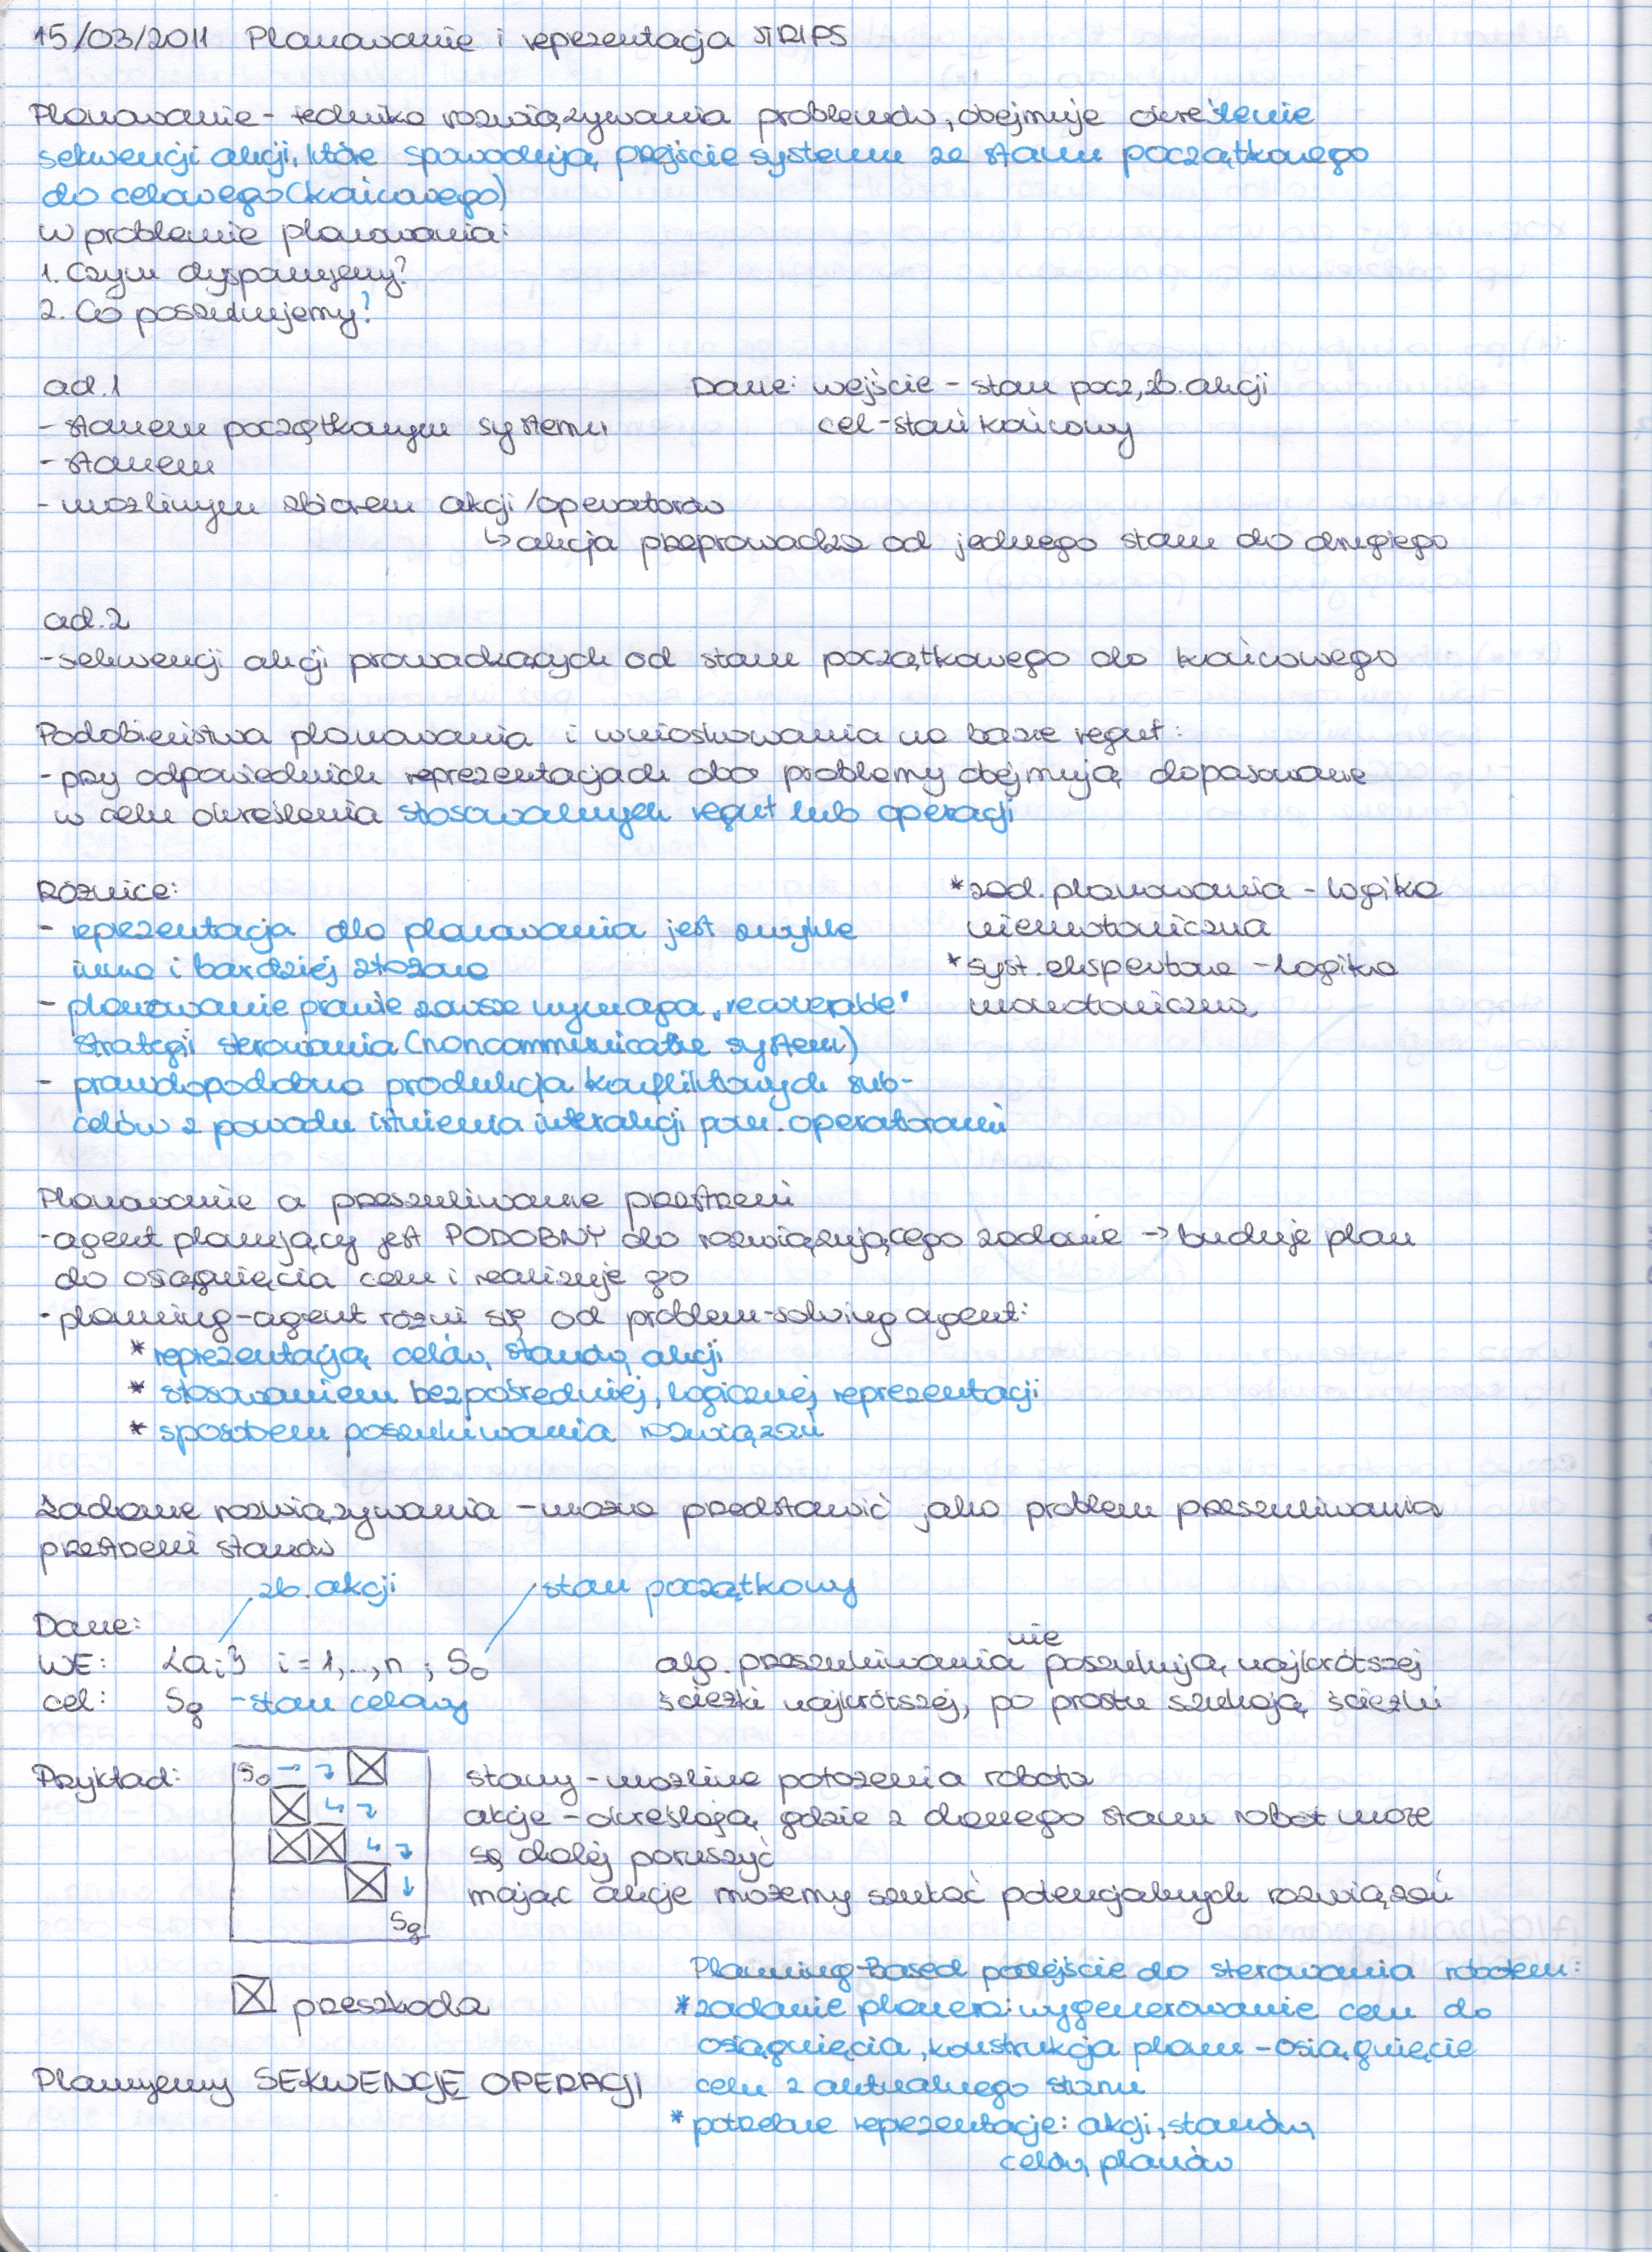 15/03/2011 Planowanie i reprezentacja STRIPS
Planowanie - technika rozwiązywania problemów, obejmuje określenie
sekwencji akcji, które spowodują przejście systemu ze stanu początkowego
do celowego (końcowego)
W problemie planowania:
1. Czym dysponujemy?
2. Co poszukujemy?
ad.1
- stanem początkowym systemu
- stanem
- możliwym zbiorem akcji/operatorów
↳ akcja przeprowadza od jednego stanu do drugiego
Dane: wejście - stan pocz, zb. akcji
cel - stan końcowy
ad.2
- sekwencji akcji prowadzących od stanu początkowego do końcowego
Podobieństwa planowania i wnioskowania na bazie reguł:
- przy odpowiednich reprezentacjach oba problemy obejmują dopasowanie
w celu określenia stosowalnych reguł lub operacji
Różnice:
- reprezentacja dla planowania jest zwykle
inna i bardziej złożona
- planowanie prawie zawsze wymaga "recoverable"
strategii sterowania (noncommunicative system)
- prawdopodobna produkcja konfliktowych sub-
celów z powodu istnienia interakcji pom. operatorami
* zad. planowania - logika
niemotoniczna
* syst. ekspertowe - logika
monotoniczna
Planowanie a przeszukiwanie przestrzeni
- agent planujący jest PODOBNY do rozwiązującego zadanie → buduje plan
do osiągnięcia celu i realizuje go
- planning-agent różni się od problem-solving agent:
* reprezentacją celów, stanów, akcji
* stosowaniem bezpośredniej, logicznej reprezentacji
* sposobem poszukiwania rozwiązań
Zadanie rozwiązywania - można przedstawić jako problem przeszukiwania
przestrzeni stanów
zb. akcji stan początkowy
Dane:
WE: {ai} i = 1,..,n ; S0
cel: Sg - stan celowy
nie
alg. przeszukiwania poszukują najkrótszej
ścieżki najkrótszej, po prostu szukają ścieżki
Przykład:
S0
Sg
stany - możliwe położenia robota
akcje - określają, gdzie z danego stanu robot może
są dalej poruszyć
mając akcje możemy szukać potencjalnych rozwiązań
przeszkoda
Planujemy SEKWENCJĘ OPERACJI
Planning-Based podejście do sterowania robotem:
* zadanie planera: wygenerowanie celu do
osiągnięcia, konstrukcja planu - osiągnięcie
celu z aktualnego stanu
* potrzebne reprezentacje: akcji, stanów,
celów, planów